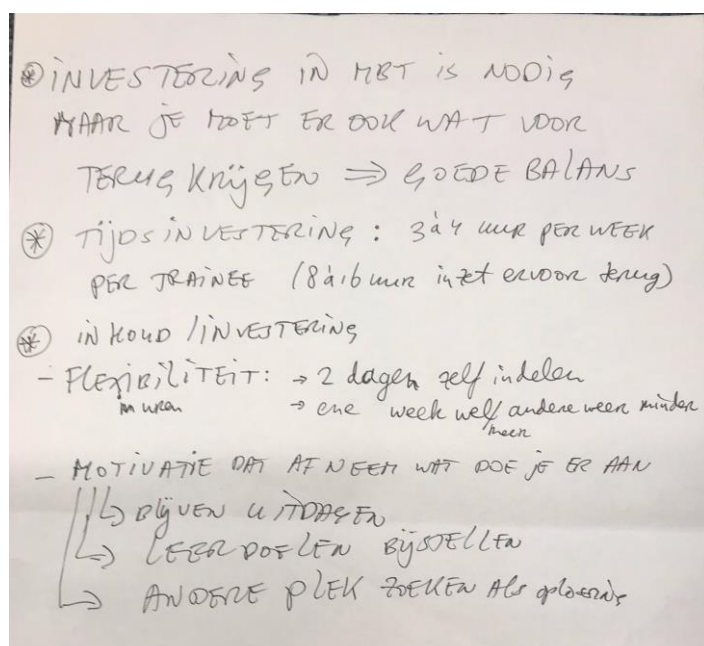 ⊛ INVESTERING IN MBT IS NODIG
MAAR JE MOET ER OOK WAT VOOR
TERUG KRIJGEN ⇒ GOEDE BALANS
⊛ TIJDSINVESTERING: 3 à 4 UUR PER WEEK
PER TRAINEE (8 à 16 uur inzet ervoor terug)
⊛ INHOUD / INVESTERING
- FLEXIBILITEIT: → 2 dagen zelf indelen
in uren → ene week welf andere weer minder
meer
- MOTIVATIE DAT AFNEEM WAT DOE JE ER AAN
↳ BLIJVEN UITDAGEN
↳ LEERDOELEN BIJSTELLEN
↳ ANDERE PLEK ZOEKEN ALS